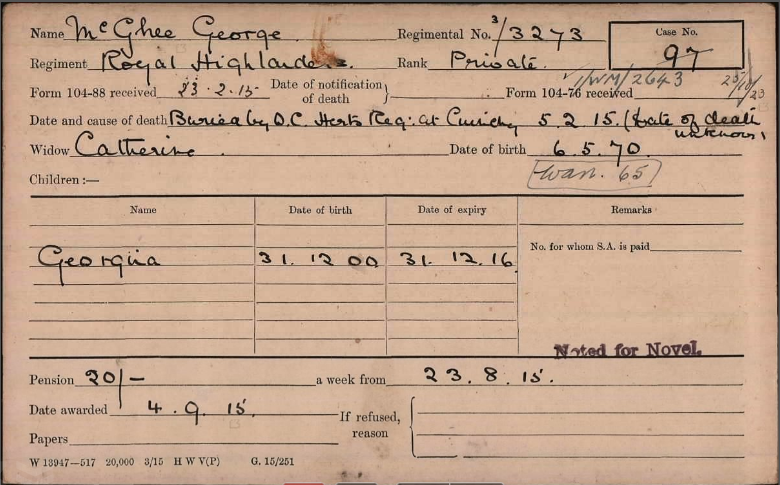 Name McGhee George Regimental No. 3/3273 Case No. 97
Regiment Royal Highlanders. Rank Private.
1/WM/2643
Form 104-88 received 23.2.15 Date of notification of death } Form 104-76 received
Date and cause of death Buried by O.C. Herts Reg: at Cuinchy 5.2.15. (Date of death
unknown)
Widow Catherine. Date of birth 6.5.70.
Children :—
Name Date of birth Date of expiry Remarks
No. for whom S.A. is paid
Georgina 31. 12 00 31. 12. 16.
Noted for Novel.
Pension 20/- a week from 23.8.15.
Date awarded 4.9.15. If refused, reason {
Papers
W 13947—517 20,000 3/15 H W V(P) G. 15/251